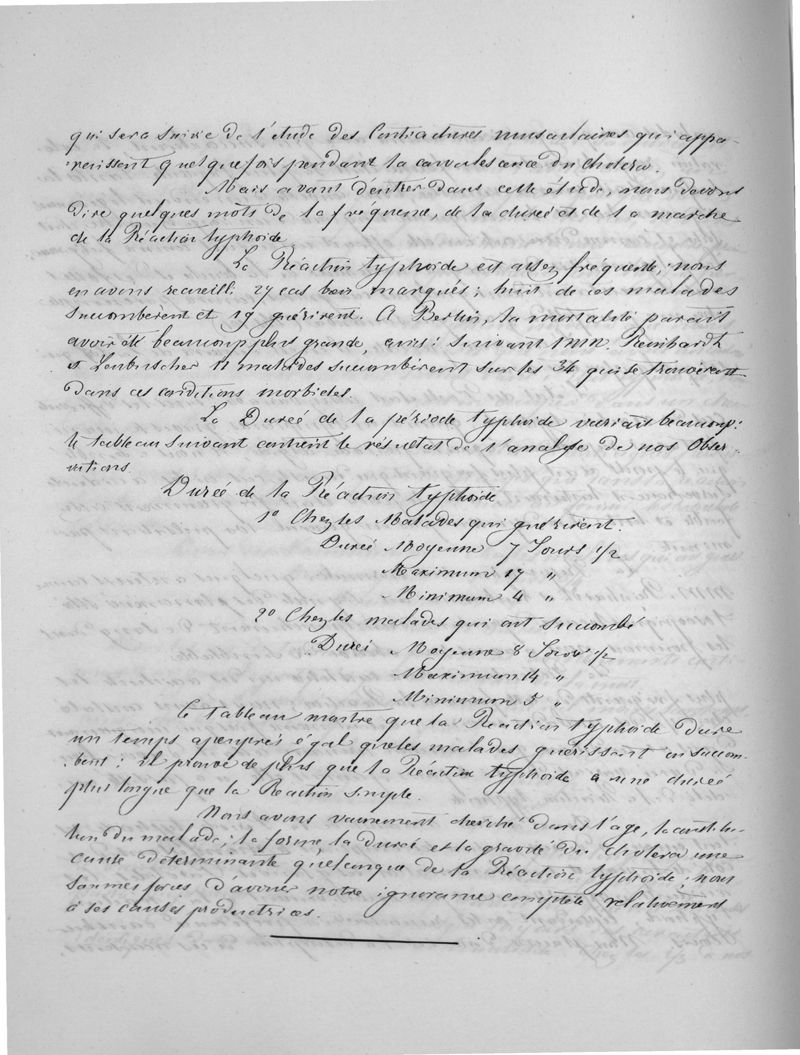 qui sera suivie de l'étude des Contractures musculaires qui appa-
raissent quelquefois pendant la convalescence du Cholera.
Mais avant d'entrer dans cette étude, nous devons
dire quelques mots de la fréquence, de la durée et de la marche
de la Réaction typhoïde
La Réaction typhoïde est assez fréquente; nous
en avons recueilli 27 cas bien marqués; huit de ces malades
succombèrent et 19 guérirent. A Berlin, la mortalité paraît
avoir été beaucoup plus grande, suivant MM. Reinhardt
et Leubuscher 11 malades succombèrent sur les 34 qui se trouvèrent
dans ces conditions morbides.
La Durée de la période typhoïde variait beaucoup:
le tableau suivant contient le résultat de l'analyse de nos Obser-
vations.
Durée de la Réaction typhoïde
1º Chez les Malades qui guérirent.
Durée Moyenne 7 Jours 1/2
Maximum 17 "
Minimum 4 "
2º Chez les malades qui ont succombé
Durée Moyenne 8 Jours 1/2
Maximum 14 "
Minimum 5 "
Ce tableau montre que la Réaction typhoïde dure
un temps apeuprès égal que les malades guérissent ou succom-
bent: il prouve de plus que la Réaction typhoïde a une durée
plus longue que la Reaction simple.
Nous avons vainement cherché dans l'age, la constitu-
tion du malade; la forme, la durée et la gravité du choléra une
cause déterminante quelconque de la Réaction typhoïde; nous
sommes forcés d'avouer notre ignorance complète relativement
à ses causes productrices.